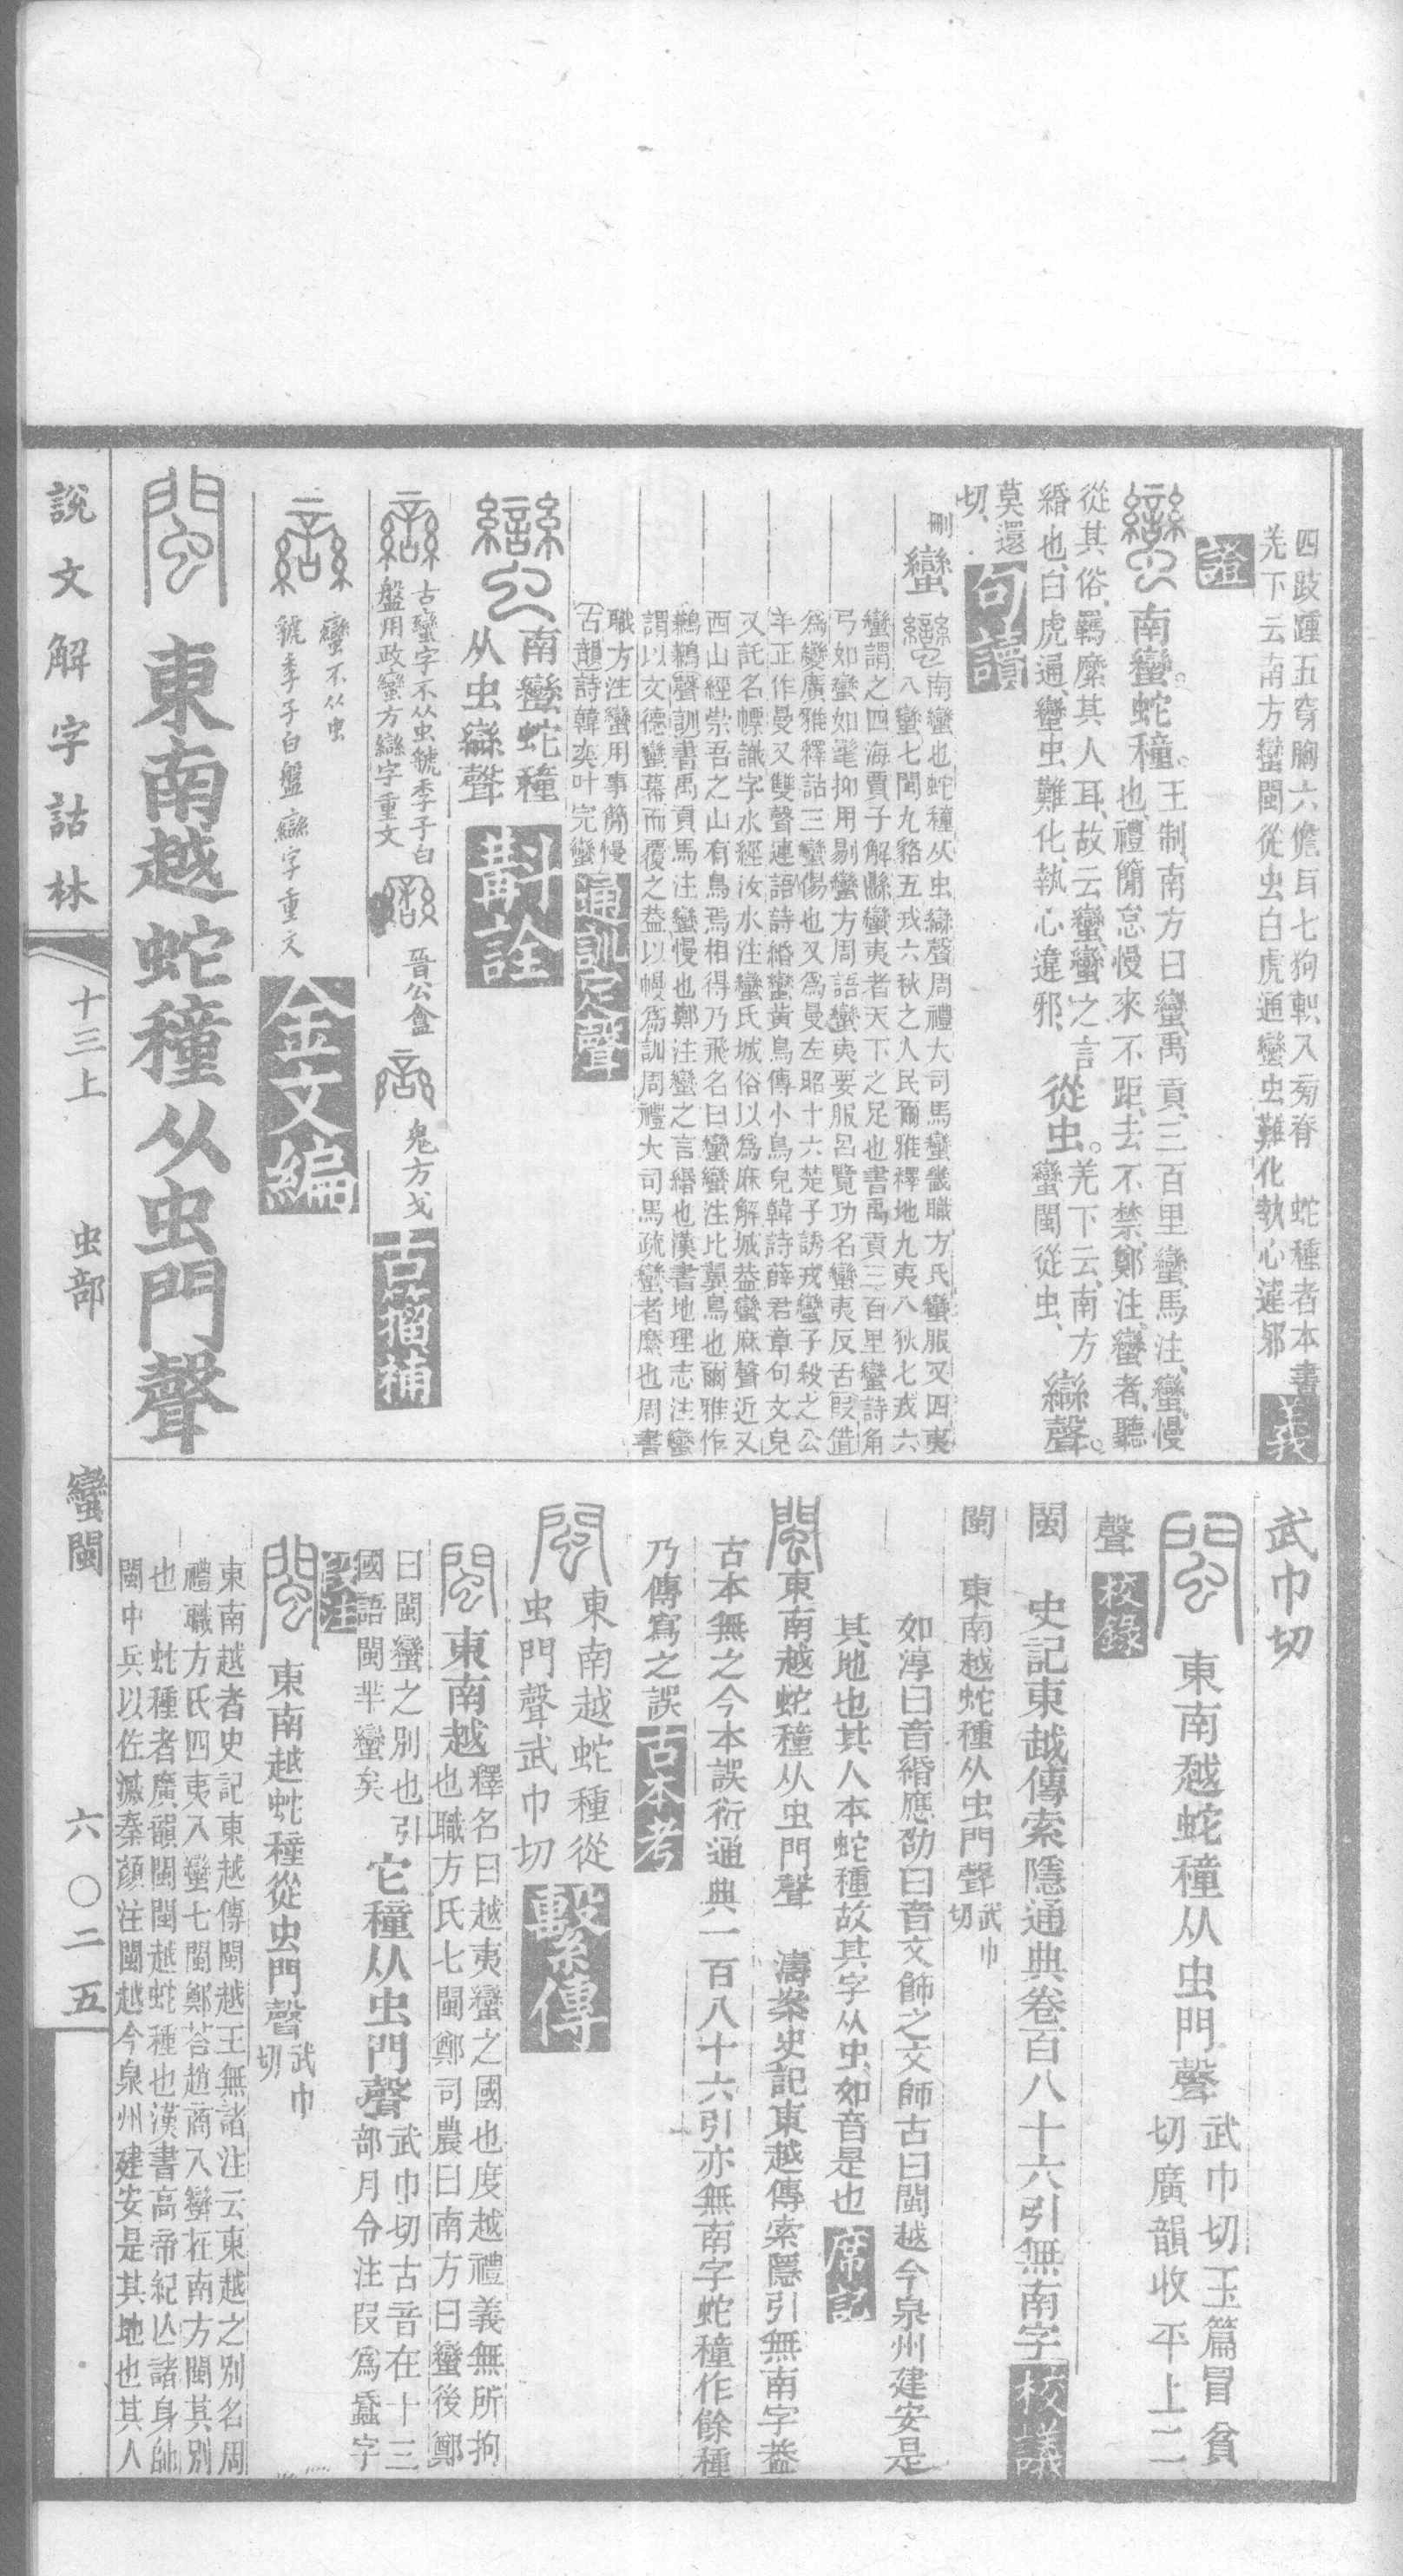 四跂踵五穿胸六儋耳七狗軹八旁脊　蛇種者本書
羌下云南方蠻閩從虫白虎通蠻虫難化執心違邪
義
證
南蠻。蛇穜。
王制南方曰蠻、禹貢、三百里蠻、馬注、蠻、慢
也、禮簡怠慢、來不距、去不禁、鄭注、蠻者、聽
從其俗、羈縻其人耳、故云蠻、蠻之言
緡也、白虎通、蠻虫難化、執心違邪、
從虫。
羌下云、南方
蠻閩從虫、
䜌聲。
莫還
切、
句讀
刪
蠻
南蠻也蛇種从虫䜌聲周禮大司馬蠻畿職方氏蠻服又四夷
八蠻七閩九貉五戎六狄之人民爾雅釋地九夷八狄七戎六
蠻謂之四海賈子解縣蠻夷者天下之足也書禹貢三百里蠻詩角
弓如蠻如髦抑用剔蠻方周語蠻夷要服呂覽功名蠻夷反舌叚借
爲變廣雅釋詁三蠻㑥也又爲曼左昭十六楚子誘戎蠻子殺之公
羊正作曼又雙聲連語詩緡蠻黃鳥傳小鳥皃韓詩薛君章句文皃
又託名幖識字水經汝水注蠻氏城俗以爲麻解城葢蠻麻聲近又
西山經崇吾之山有鳥焉相得乃飛名曰蠻蠻注比翼鳥也爾雅作
鶼鶼聲訓書禹貢馬注蠻慢也鄭注蠻之言緡也漢書地理志注蠻
謂以文德蠻幕而覆之葢以幔爲訓周禮大司馬疏蠻者縻也周書
職方注蠻用事簡慢
古韻詩韓奕叶完蠻
通訓定聲
南蠻蛇穜
从虫䜌聲
斠詮
古蠻字不从虫虢季子白
盤用政蠻方䜌字重文
晉公盦
鬼方戈
古籀補
蠻不从虫
虢季子白盤　䜌字重文
金文編
東南越蛇穜从虫門聲
武巾切
東南越蛇穜从虫門聲
武巾切玉篇冒貧
切廣韻收平上二
聲
校錄
閩　史記東越傳索隱通典卷百八十六引無南字
校議
閩　東南越蛇種从虫門聲
武巾
切
如淳曰音緡應劭曰音文飾之文師古曰閩越今泉州建安是
其地也其人本蛇種故其字从虫、如音是也
席記
東南越蛇穜从虫門聲　濤案史記東越傳索隱引無南字葢
古本無之今本誤衍通典一百八十六引亦無南字蛇穜作餘種
乃傳寫之誤
古本考
東南越蛇種從
虫門聲武巾切
繫傳
東南越
釋名曰越夷蠻之國也度越禮義無所拘
也職方氏七閩鄭司農曰南方曰蠻後鄭
曰閩蠻之別也引
國語閩芈蠻矣
它穜从虫門聲
武巾切古音在十三
部月令注叚爲蟁字
段注
東南越蛇種從虫門聲
武巾
切
東南越者史記東越傳閩越王無諸注云東越之別名周
禮職方氏四夷八蠻七閩鄭荅趙商八蠻在南方閩其別
也　蛇種者廣韻閩閩越蛇種也漢書高帝紀亾諸身帥
閩中兵以佐滅秦顏注閩越今泉州建安是其地也其人
說文解字詁林
十三上
虫部
蠻閩
六〇二五